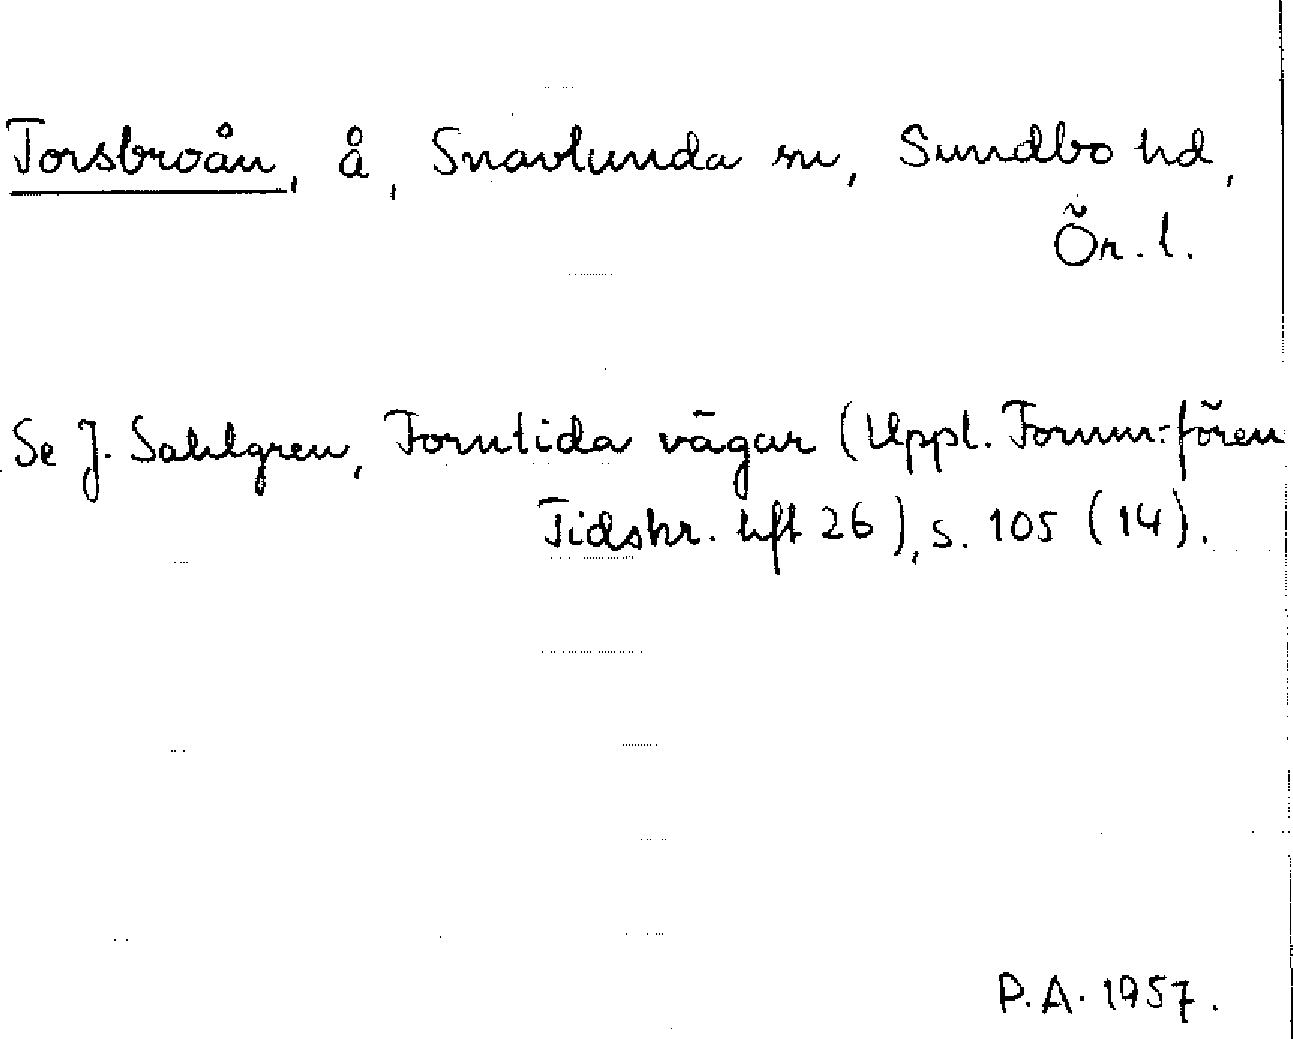 Torsbroån, å, Snavlunda sn, Sundbo hd,
Ör. l.
Se J. Sahlgren, Forntida vägar (Uppl. Fornm:fören
Tidskr. hft 26), s. 105 (14).
P.A. 1957.